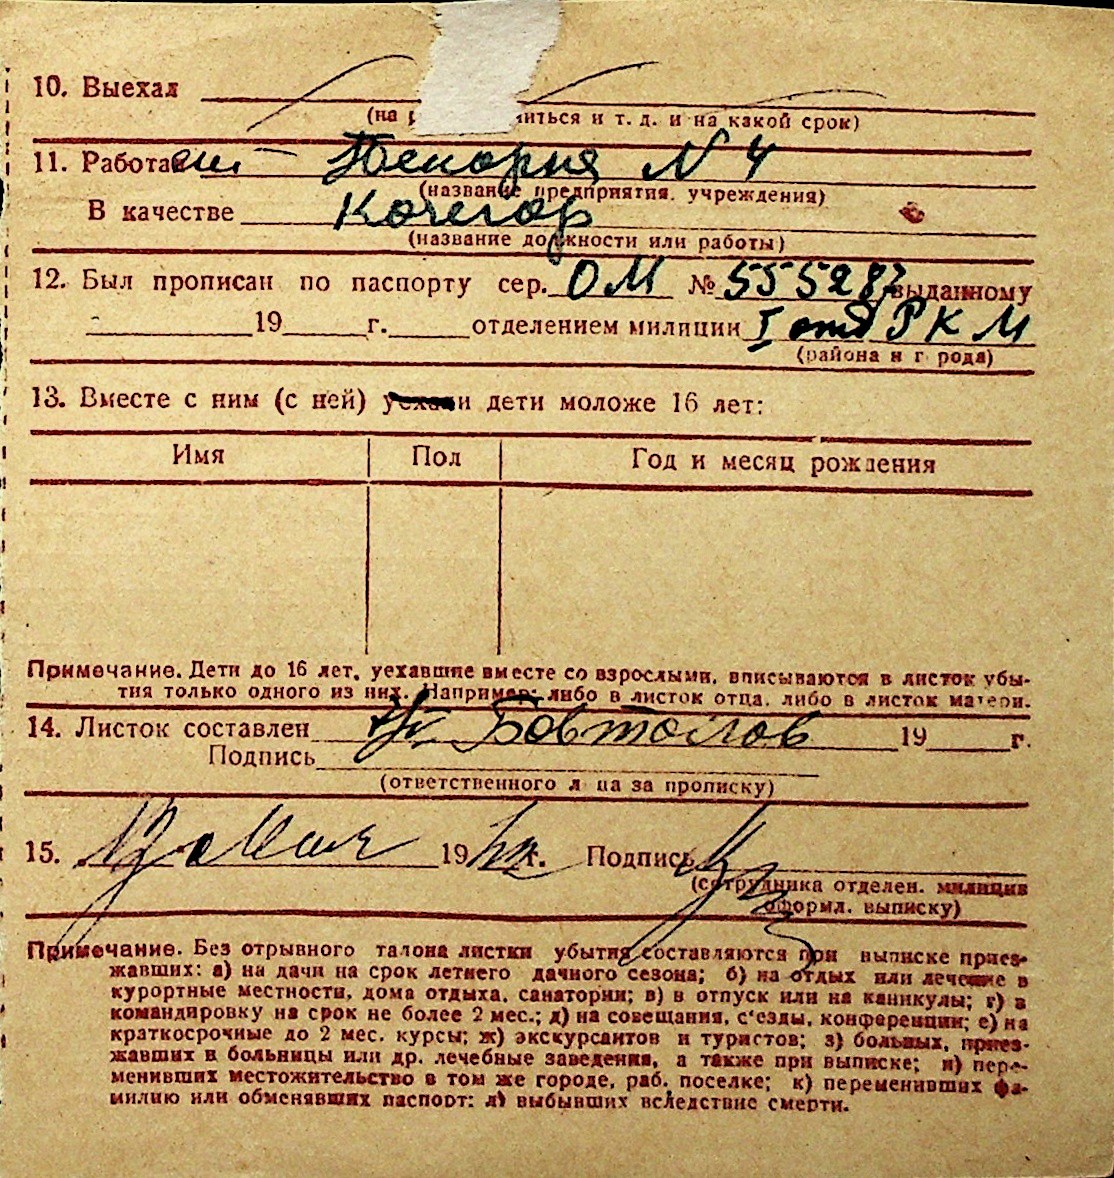 10. Выехал
(на иться и т. д. и на какой срок)
11. Работает Пекарня N 4
(название предприятия, учреждения)
В качестве Кочегар
(название должности или работы)
12. Был прописан по паспорту сер. ОМ № 555287 выданному
19 г. отделением милиции I отд РКМ
(района и г рода)
13. Вместе с ним (с ней) уехали дети моложе 16 лет:
Имя Пол Год и месяц рождения
Примечание. Дети до 16 лет, уехавшие вместе со взрослыми, вписываются в листок убы-
тия только одного из них. Например: либо в листок отца, либо в листок матери.
14. Листок составлен Бовтолов 19 г.
Подпись
(ответственного л ца за прописку)
15. Мая 19 г. Подпись
(сотрудника отделен. милиции
оформл. выписку)
Примечание. Без отрывного талона листки убытия составляются при выписке приез-
жавших: а) на дачи на срок летнего дачного сезона; б) на отдых или лечение в
курортные местности, дома отдыха, санатории; в) в отпуск или на каникулы; г) в
командировку на срок не более 2 мес.; д) на совещания, с'езды, конференции; е) на
краткосрочные до 2 мес. курсы; ж) экскурсантов и туристов; з) больных, приез-
жавших в больницы или др. лечебные заведения, а также при выписке; и) пере-
менивших местожительство в том же городе, раб. поселке; к) переменивших фа-
милию или обменявших паспорт; л) выбывших вследствие смерти.